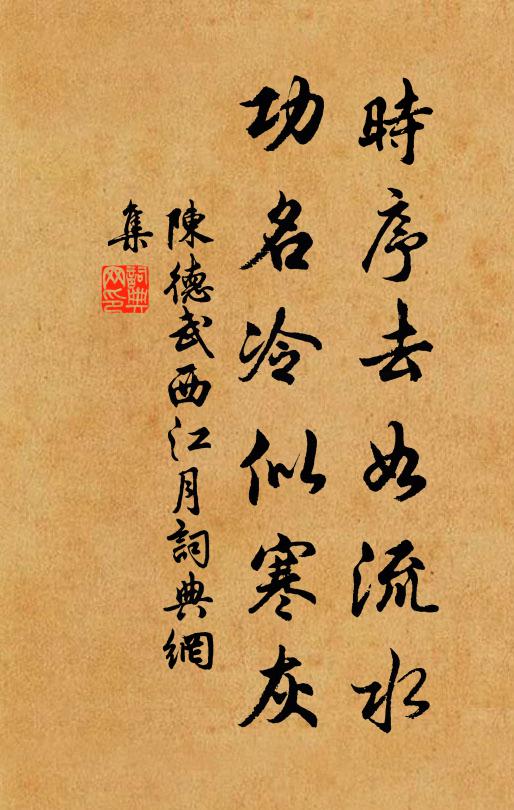 時序去如流水
功名冷似寒灰
陳德武西江月詞典網
集
詞典
网印